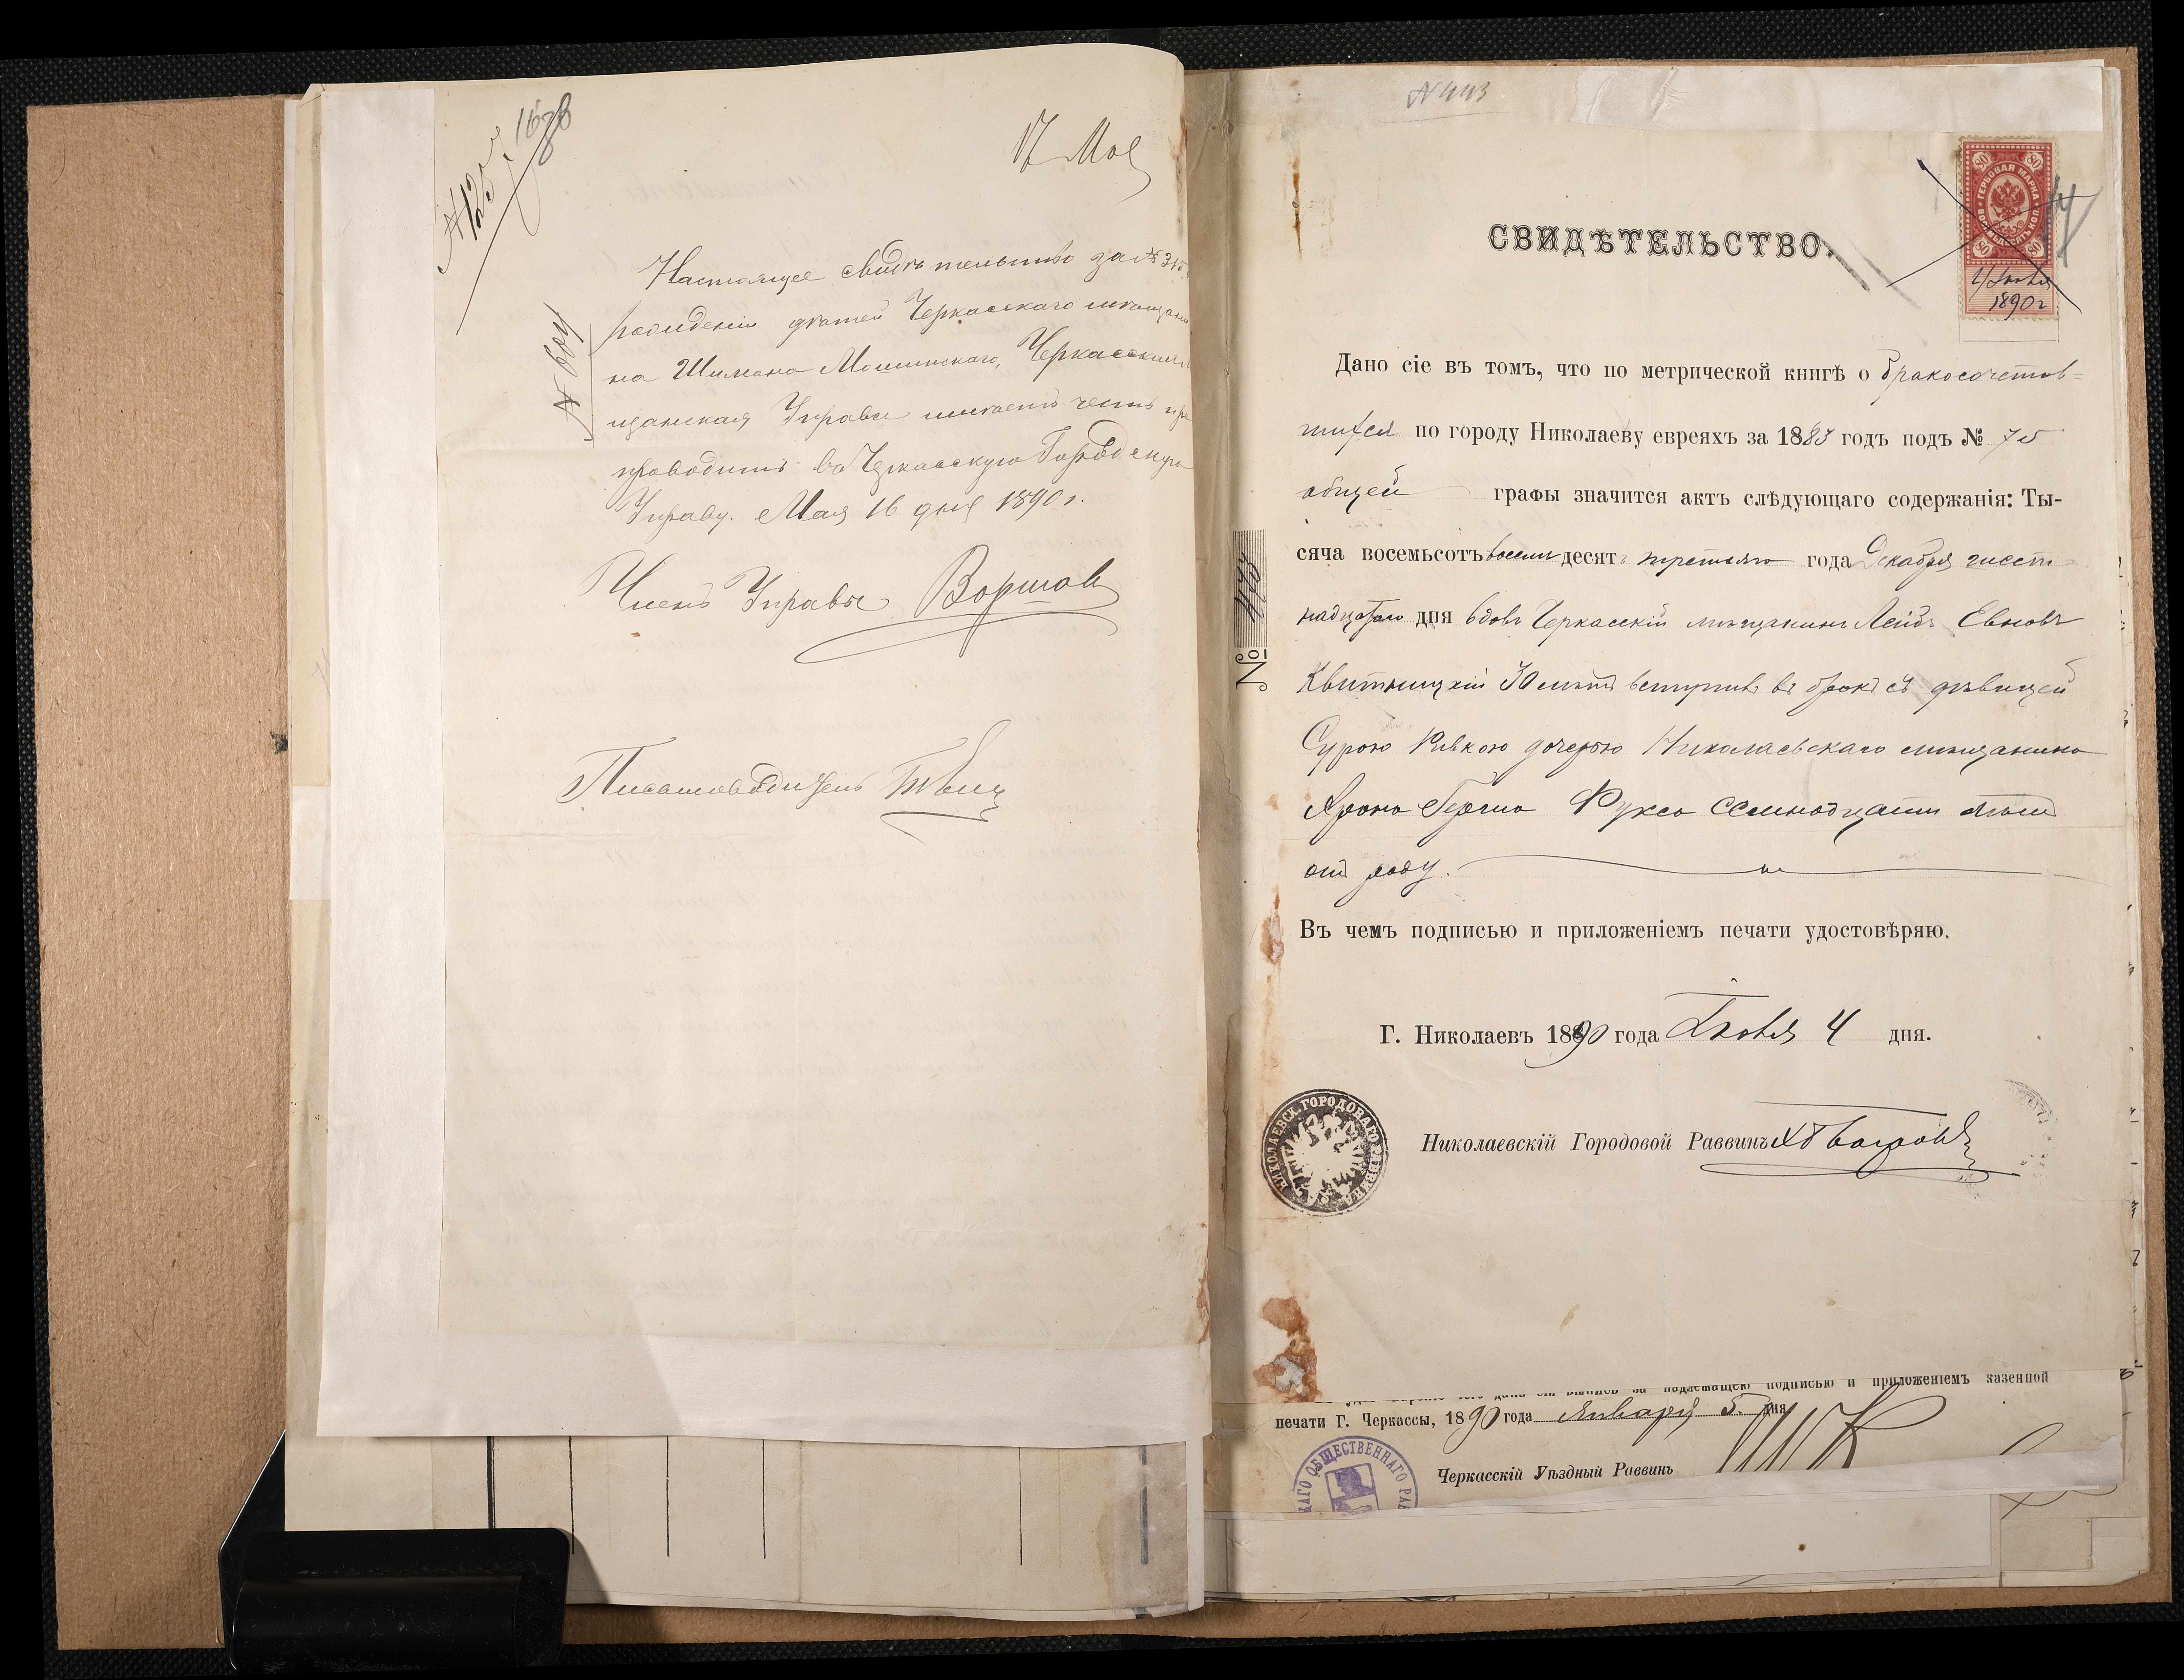 17 Мая
Настоящее свидѣтельство за №
рожденіи дѣтей Черкасскаго мѣщани
на Шимона Мошинскаго, Черкасская
щанская Управа имѣетъ честь пре
проводить въ Черкасскую Городскую
Управу. Мая 16 дня 1890 г.
Членъ Управы
Письмоводитель
N 443
СВИДѢТЕЛЬСТВО.
80 80
ГЕРБОВАЯ МАРКА
80 80
4 Іюня
1890 г
Дано сіе въ томъ, что по метрической книгѣ о бракосочетав-
шихся по городу Николаеву евреяхъ за 1883 годъ подъ № 75
общей графы значится актъ слѣдующаго содержанія: Ты-
сяча восемьсотъ восемьдесятъ третьяго года Декабря шест-
надцатаго дня вдовъ Черкасскій мѣщанинъ Лейбъ Евновъ
Квитницкій 30 лѣтъ вступилъ въ бракъ съ дѣвицей
Сурою Ривкою дочерью Николаевскаго мѣщанина
Арона Герша Фукса семнадцати лѣтъ
отъ роду.
Въ чемъ подписью и приложеніемъ печати удостовѣряю.
Г. Николаевъ 1890 года Іюня 4 дня.
Николаевскій Городовой Раввинъ
НИКОЛАЕВСК. ГОРОДОВАГО РАВВИНА
№ 443
надлежащею подписью и приложеніемъ казенной
печати Г. Черкассы, 1890 года Января 5. дня
Черкасскій Уѣздный Раввинъ
КАГО ОБЩЕСТВЕННАГО РАВ